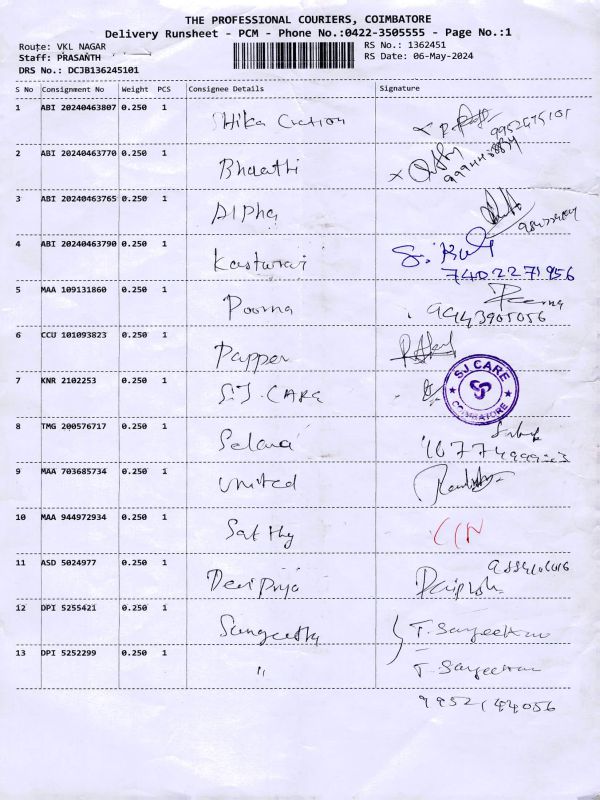 THE PROFESSIONAL COURIERS, COIMBATORE
Delivery Runsheet - PCM - Phone No.:0422-3505555 - Page No.:1
Route: VKL NAGAR RS No.: 1362451
Staff: PRASANTH RS Date: 06-May-2024
DRS No.: DCJB136245101
S No Consignment No Weight PCS Consignee Details Signature
1 ABI 20240463807 0.250 1 Shika Cretion
2 ABI 20240463770 0.250 1 Bharathi
3 ABI 20240463765 0.250 1 Alpha
4 ABI 20240463790 0.250 1 Kasturai
7402271956
5 MAA 109131860 0.250 1 Poorna Poorna
9443905056
6 CCU 101093823 0.250 1 Papper
7 KNR 2102253 0.250 1 S.J. CARE SJ CARE COIMBATORE
8 TMG 200576717 0.250 1
9 MAA 703685734 0.250 1 United
10 MAA 944972934 0.250 1 Sat thy
11 ASD 5024977 0.250 1 Devi Priya
12 DPI 5255421 0.250 1 Sangeetha T. Sangeetha
13 DPI 5252299 0.250 1 " T. Sangeetha
9952144056